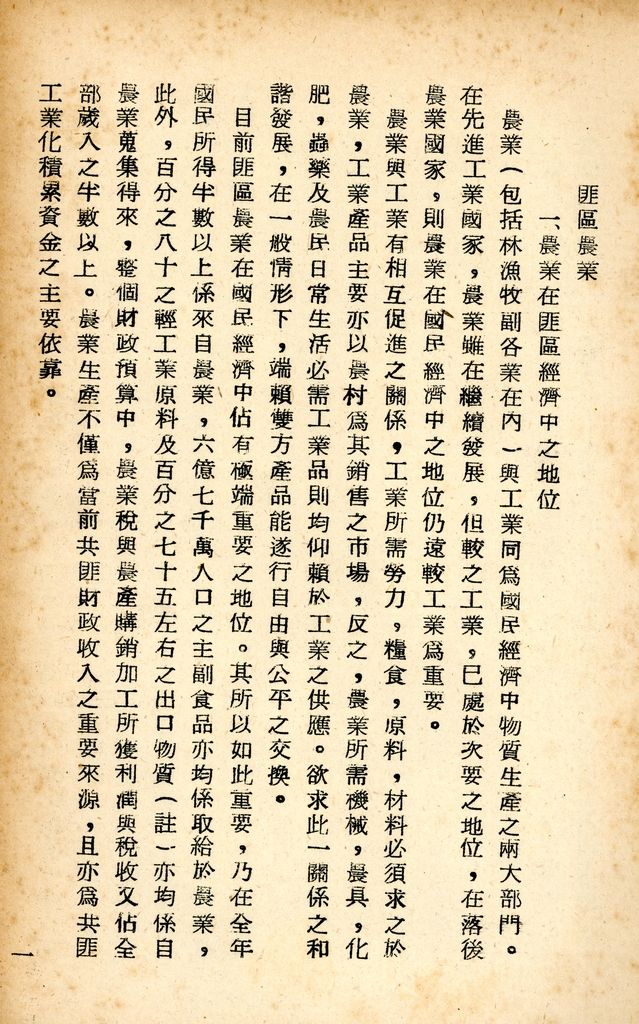 匪區農業
一、農業在匪區經濟中之地位
農業（包括林漁牧副各業在內）與工業同爲國民經濟中物質生產之兩大部門。
在先進工業國家，農業雖在繼續發展，但較之工業，已處於次要之地位，在落後
農業國家，則農業在國民經濟中之地位仍遠較工業爲重要。
農業與工業有相互促進之關係，工業所需勞力，糧食，原料，材料必須求之於
農業，工業產品主要亦以農村爲其銷售之市場，反之，農業所需機械，農具，化
肥，蟲藥及農民日常生活必需工業品則均仰賴於工業之供應。欲求此一關係之和
諧發展，在一般情形下，端賴雙方產品能遂行自由與公平之交換。
目前匪區農業在國民經濟中佔有極端重要之地位。其所以如此重要，乃在全年
國民所得半數以上係來自農業，六億七千萬人口之主副食品亦均係取給於農業，
此外，百分之八十之輕工業原料及百分之七十五左右之出口物質（註一亦均係自
農業蒐集得來，整個財政預算中，農業稅與農產購銷加工所獲利潤與稅收又佔全
部歲入之半數以上。農業生產不僅爲當前共匪財政收入之重要來源，且亦爲共匪
工業化積累資金之主要依靠。
一